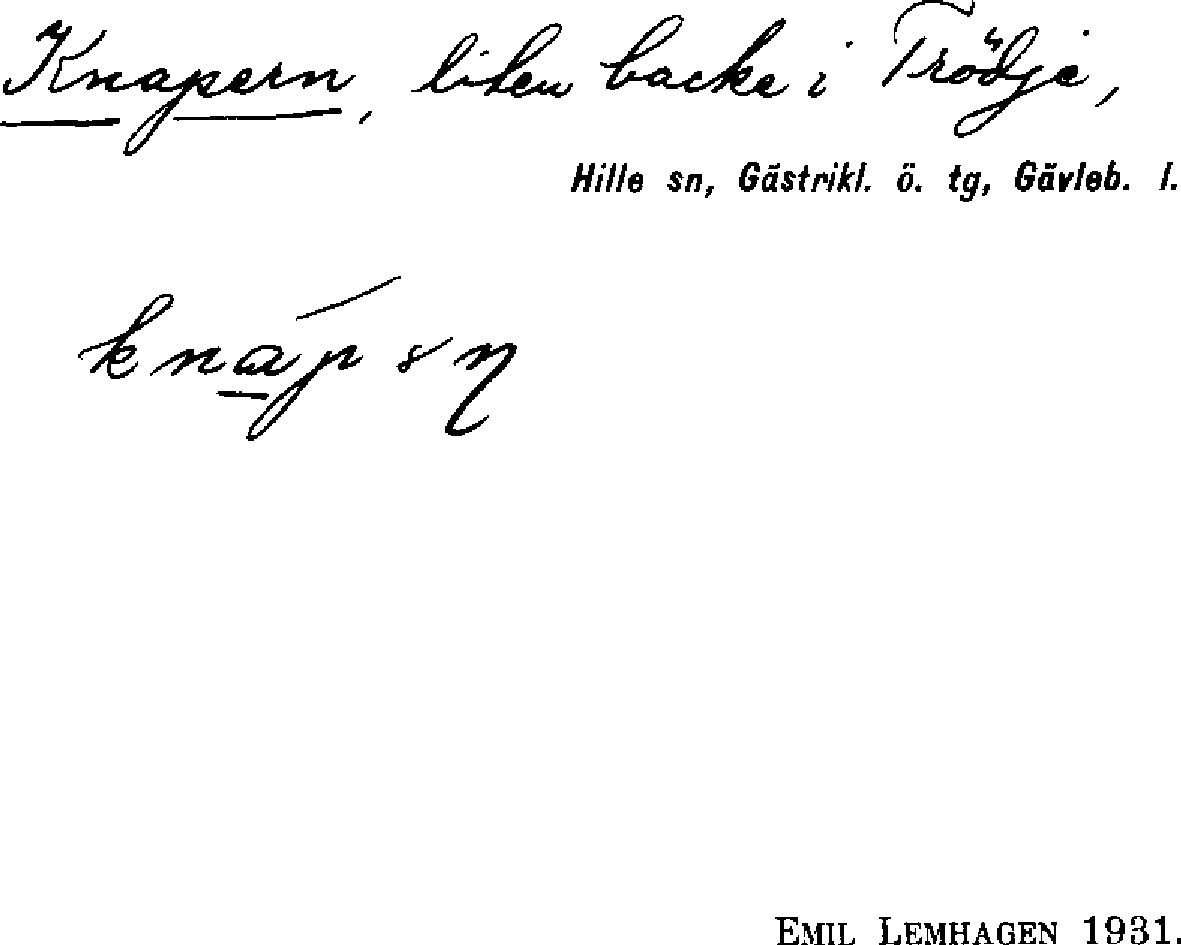 Knapern, liten backe i Trödje,
Hille sn, Gästrikl. ö. tg, Gävleb. l.
EMIL LEMHAGEN 1931.